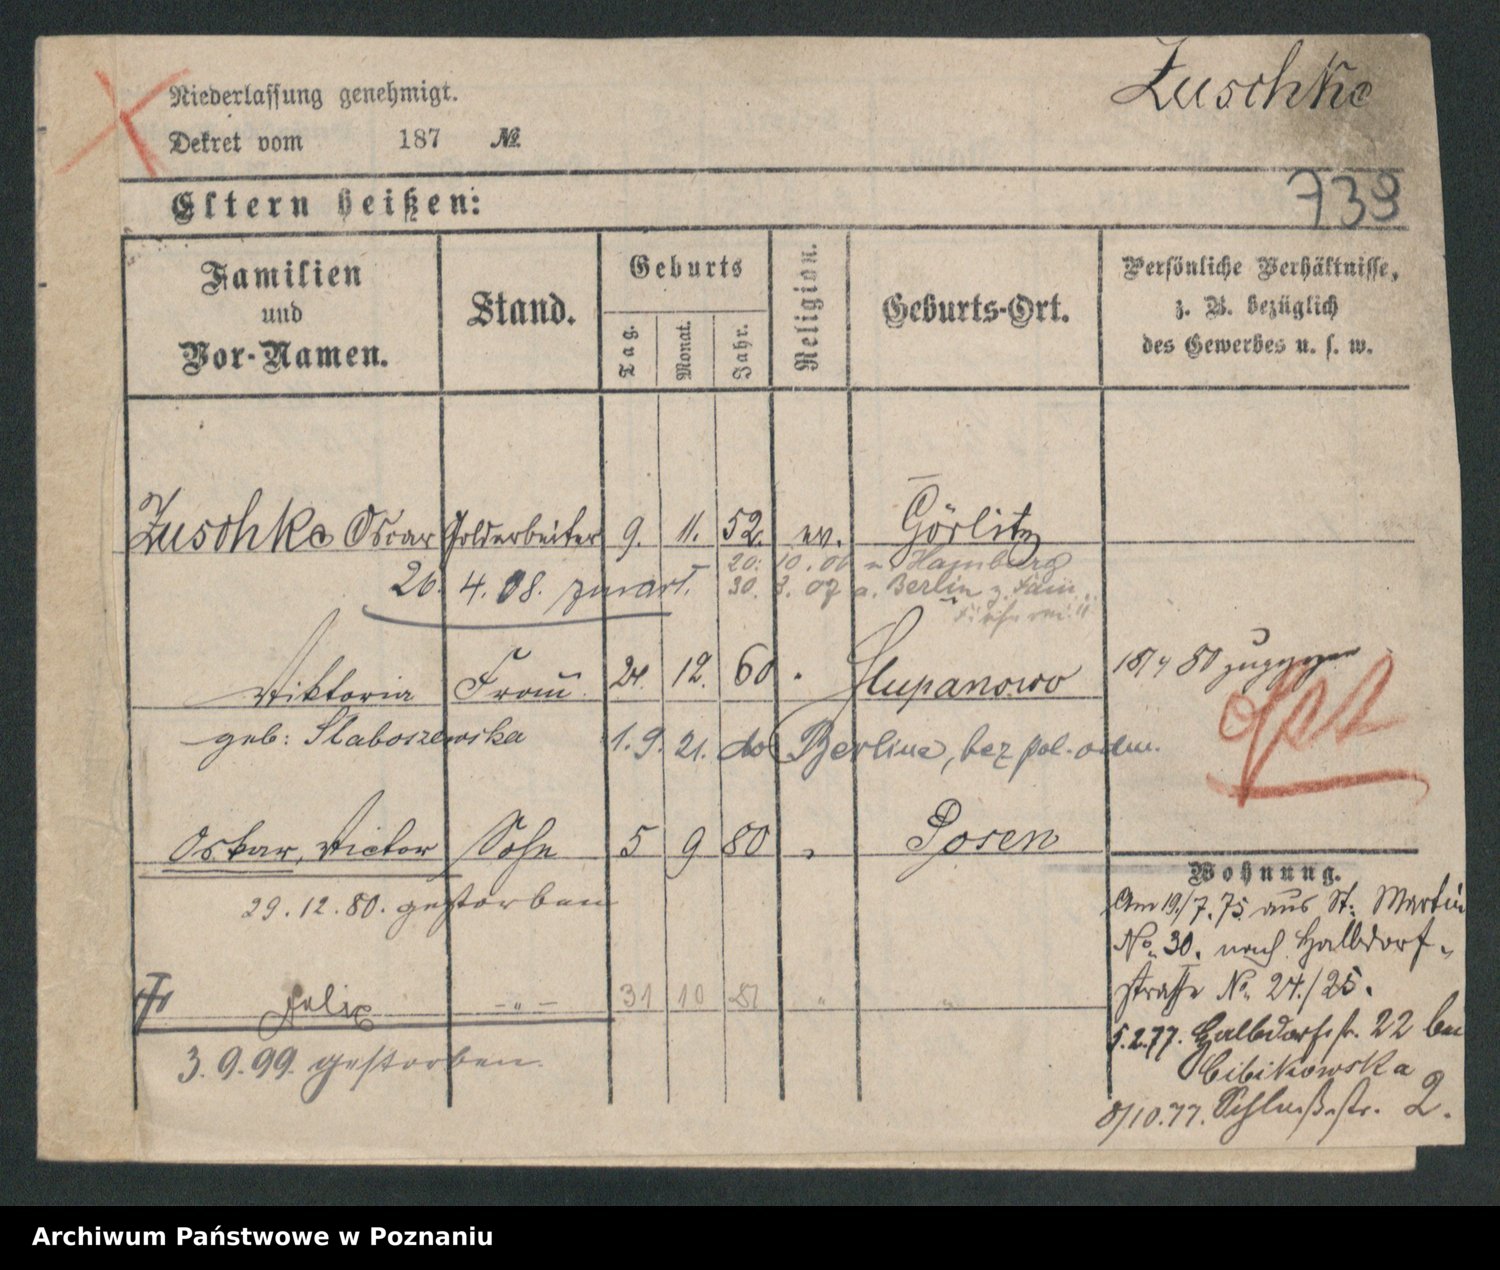 Zuschke
Niederlassung genehmigt.
Dekret vom 187 №
739
Eltern heißen:
Familien und Vor-Namen.
Stand.
Geburts
Tag. Monat. Jahr.
Religion.
Geburts-Ort.
Persönliche Verhältnisse, z. B. bezüglich des Gewerbes u. s. w.
Zuschke Oscar Goldarbeiter 9. 11. 52. ev. Görlitz
20. 10. 06 n Hamburg
26. 4. 08. zurück. 30. 3. 07 a. Berlin z. Fam.
Viktoria Frau 21. 12. 60 " Slupanowo 18/4 80 zugezogen
geb: Slaboszewska 1. 9. 21. do Berlina, bez pol. odm.
Oskar, Victor Sohn 5 9 80 " Posen
29. 12. 80. gestorben
Felix -"- 31 10 81 " "
3. 9. 99. gestorben.
Wohnung.
Am 19./7. 75 aus St: Martin
No. 30. nach Halbdorf-
straße No. 24./25.
5.2.77. Halbdorfstr. 22 bei
Cibikowska
8/10.77. Schloßstr. 2.
Archiwum Państwowe w Poznaniu